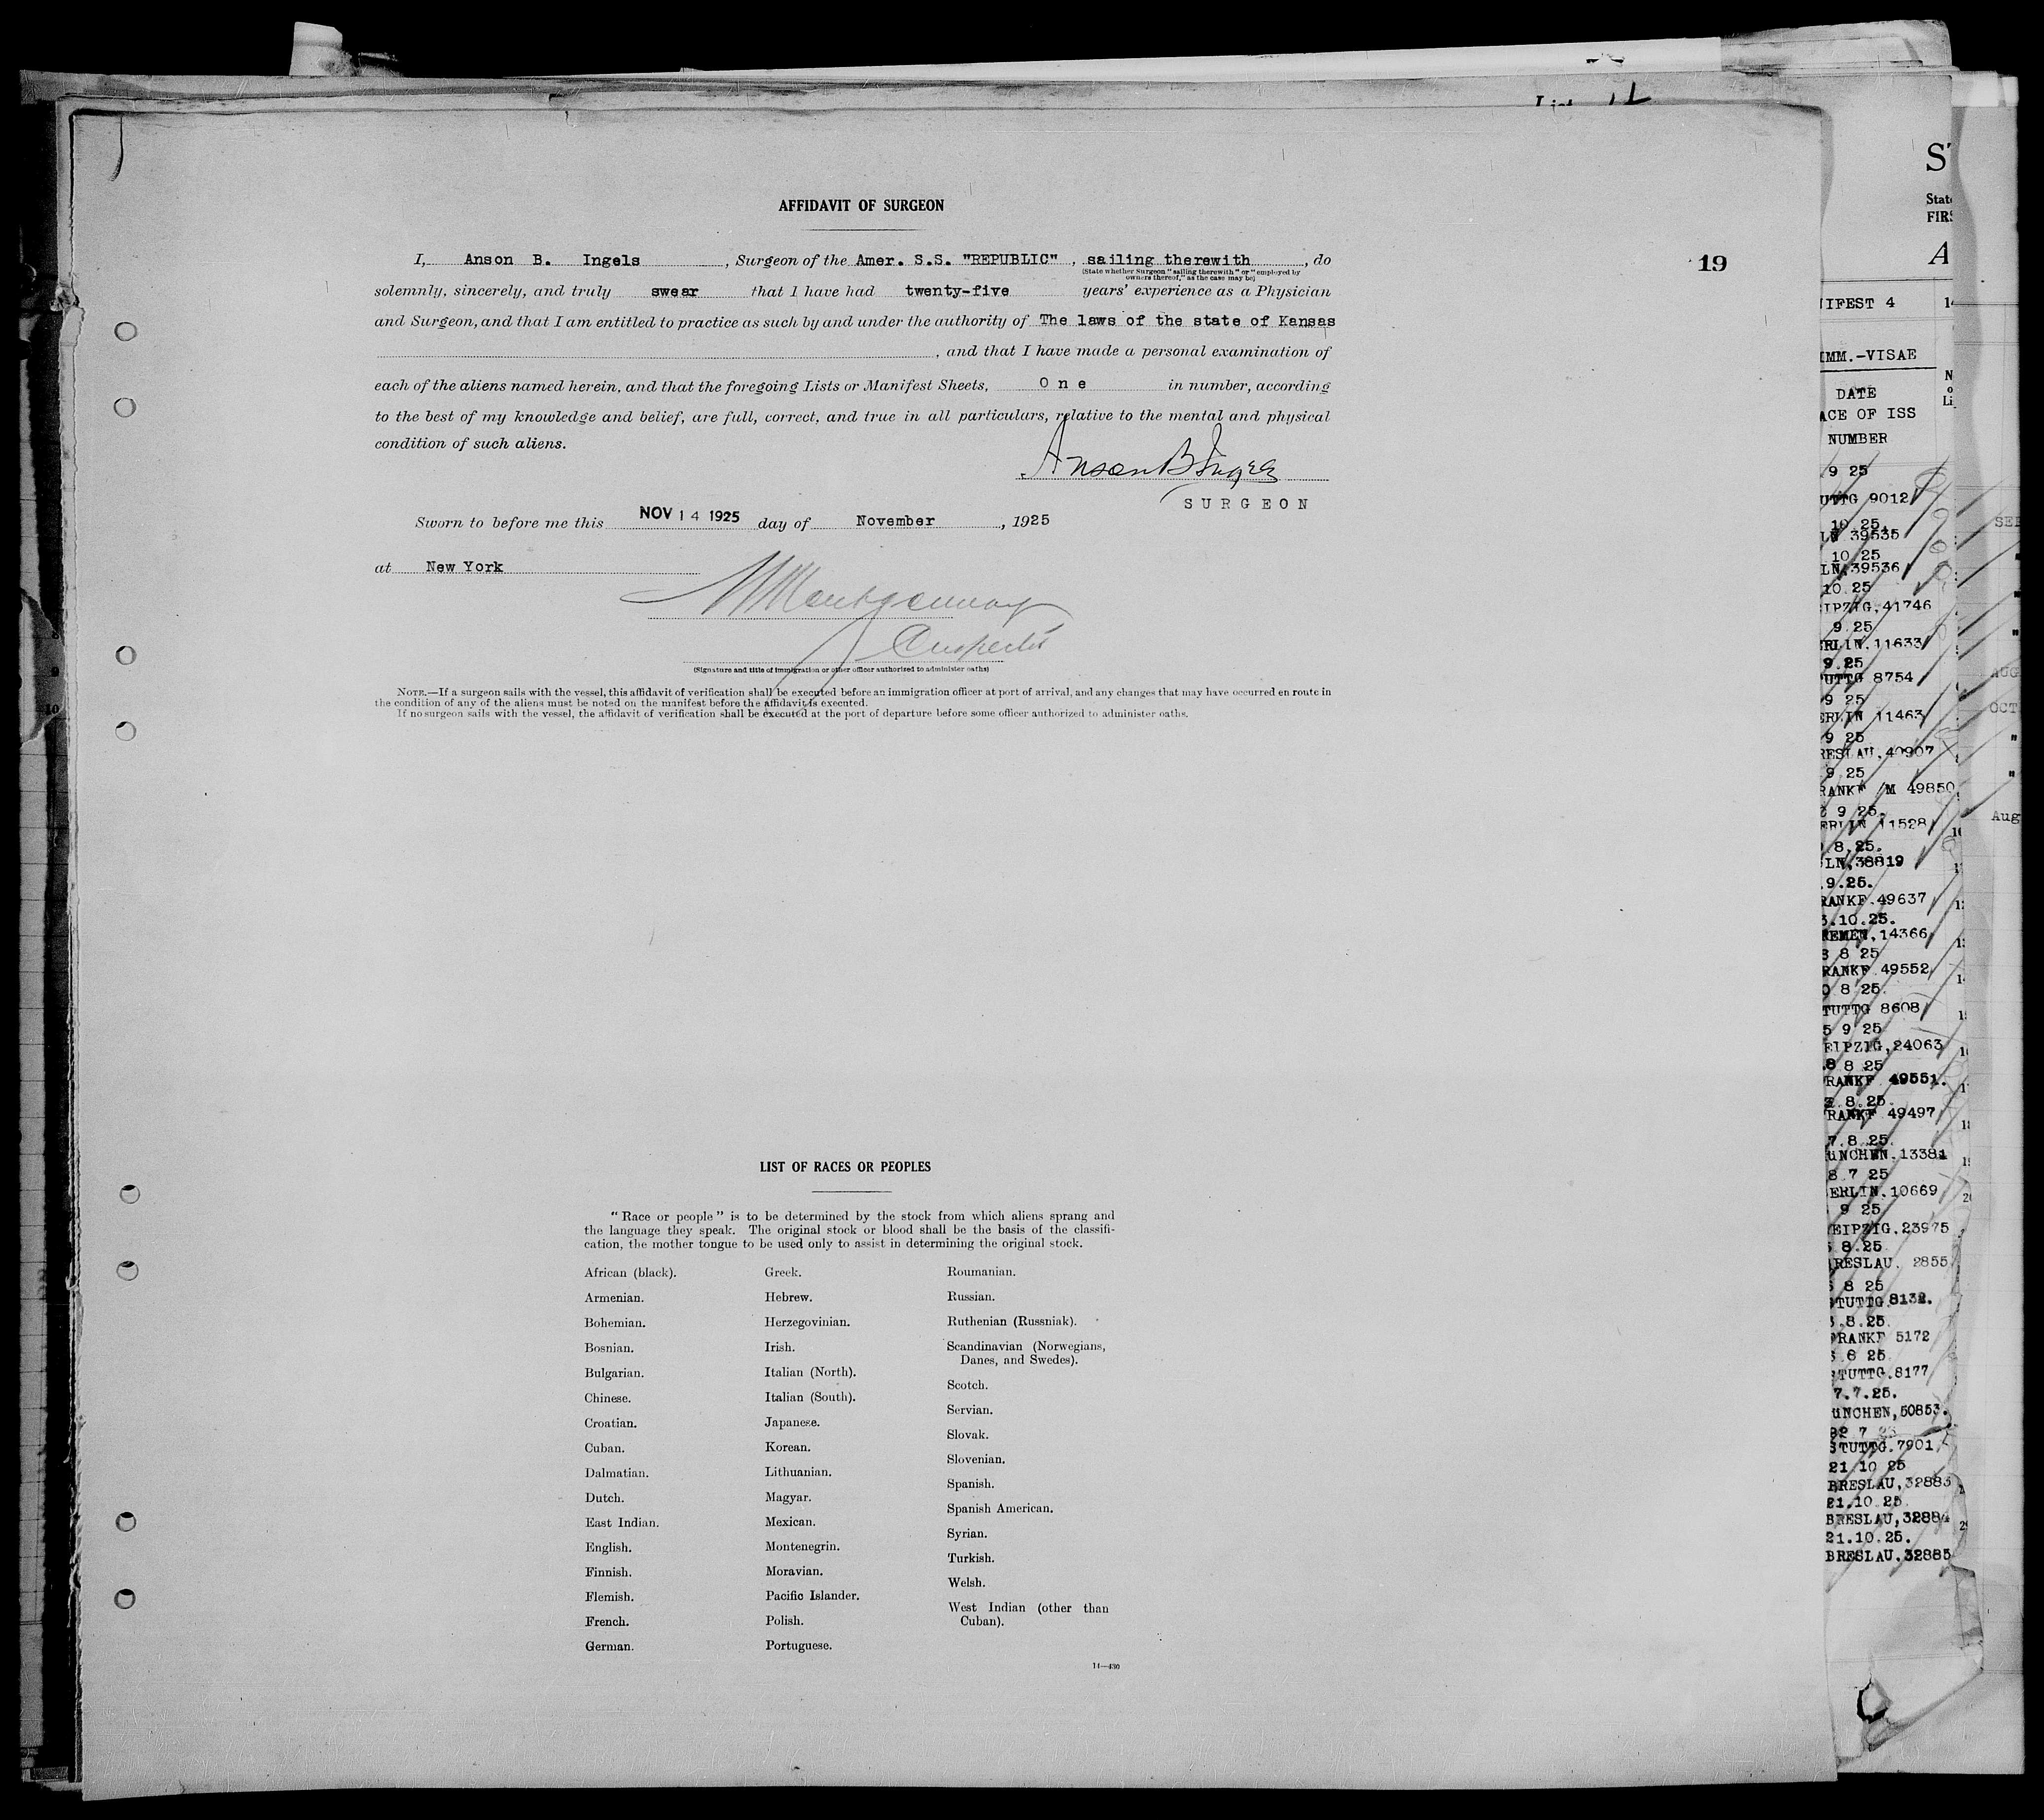 AFFIDAVIT OF SURGEON
I, Anson B. Ingels, Surgeon of the Amer. S.S. "REPUBLIC", sailing therewith, do
(State whether Surgeon "sailing therewith" or "employed by
owners thereof," as the case may be)
19
solemnly, sincerely, and truly swear that I have had twenty-five years' experience as a Physician
and Surgeon, and that I am entitled to practice as such by and under the authority of The laws of the state of Kansas
, and that I have made a personal examination of
each of the aliens named herein, and that the foregoing Lists or Manifest Sheets, One in number, according
to the best of my knowledge and belief, are full, correct, and true in all particulars, relative to the mental and physical
condition of such aliens.
Anson B Ingels
SURGEON
Sworn to before me this NOV 14 1925 day of November, 1925
at New York
Montgomery
Inspector
(Signature and title of immigration or other officer authorized to administer oaths)
NOTE.—If a surgeon sails with the vessel, this affidavit of verification shall be executed before an immigration officer at port of arrival, and any changes that may have occurred en route in
the condition of any of the aliens must be noted on the manifest before the affidavit is executed.
If no surgeon sails with the vessel, the affidavit of verification shall be executed at the port of departure before some officer authorized to administer oaths.
LIST OF RACES OR PEOPLES
"Race or people" is to be determined by the stock from which aliens sprang and
the language they speak. The original stock or blood shall be the basis of the classifi-
cation, the mother tongue to be used only to assist in determining the original stock.
African (black).
Armenian.
Bohemian.
Bosnian.
Bulgarian.
Chinese.
Croatian.
Cuban.
Dalmatian.
Dutch.
East Indian.
English.
Finnish.
Flemish.
French.
German.
Greek.
Hebrew.
Herzegovinian.
Irish.
Italian (North).
Italian (South).
Japanese.
Korean.
Lithuanian.
Magyar.
Mexican.
Montenegrin.
Moravian.
Pacific Islander.
Polish.
Portuguese.
Roumanian.
Russian.
Ruthenian (Russniak).
Scandinavian (Norwegians,
Danes, and Swedes).
Scotch.
Servian.
Slovak.
Slovenian.
Spanish.
Spanish American.
Syrian.
Turkish.
Welsh.
West Indian (other than
Cuban).
14—430
IFEST 4
IMM.-VISAE
DATE
ACE OF ISS
NUMBER
9 25
UTTG 9012
10 25
LN 39535
10 25
LN, 39536
10 25
IPZIG, 41746
9.25
ERLIN. 11633
9.25
UTTG 8754
9 25
ERLIN 11463
9 25
RESLAU. 40907
9.25
RANKF /M 49850
9 25.
ERLIN 11528
8.25.
LN, 38819
9.25.
RANKF. 49637
.10.25.
REMEN, 14366
8 25
RANKF 49552
8 25.
TUTTG 8608
5 9 25
EIPZIG, 24063
8 8 25
RANKF 49551.
8.25.
RANKF 49497
7.8.25.
UNCHEN. 13381
8 7 25
ERLIN. 10669
9 25
EIPZIG. 23975
8.25
RESLAU. 2855
8 25
TUTTG. 8132.
.8.25.
RANKF 5172
6 25.
TUTTG. 8177
7.7.25.
UNCHEN, 50853.
STUTTG. 7901
21.10 25
BRESLAU, 32883
21.10.25.
BRESLAU, 32884
21.10.25.
BRESLAU. 32885